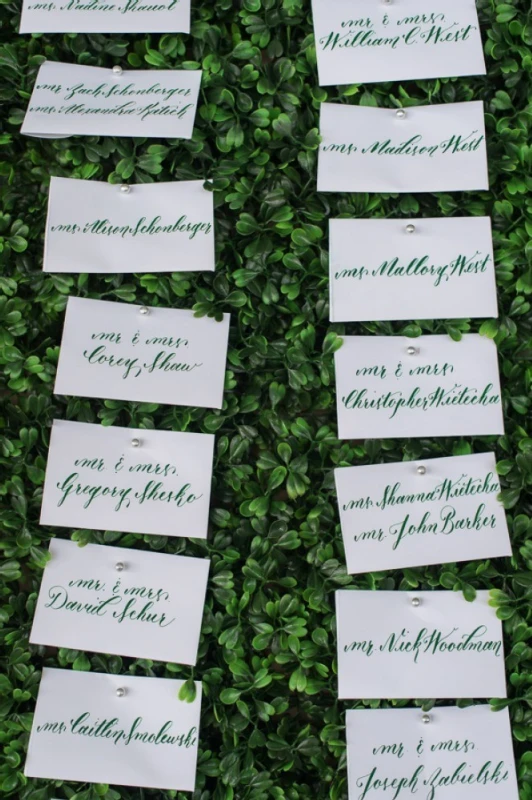 ms. Nadine Shauot
mr. Zach Schonberger
ms. Alexandra Ritich
ms. Alison Schonberger
mr & mrs.
Corey Shaw
mr & mrs.
Gregory Shesko
mr. & mrs.
David Schur
ms. Caitlin Smolewski
mr & mrs.
William C. West
ms. Madison West
ms. Mallory West
mr & mrs.
Christopher Wietecha
ms. Shanna Wietecha
mr. John Barker
mr. Nick Woodman
mr & mrs.
Joseph Zabielski